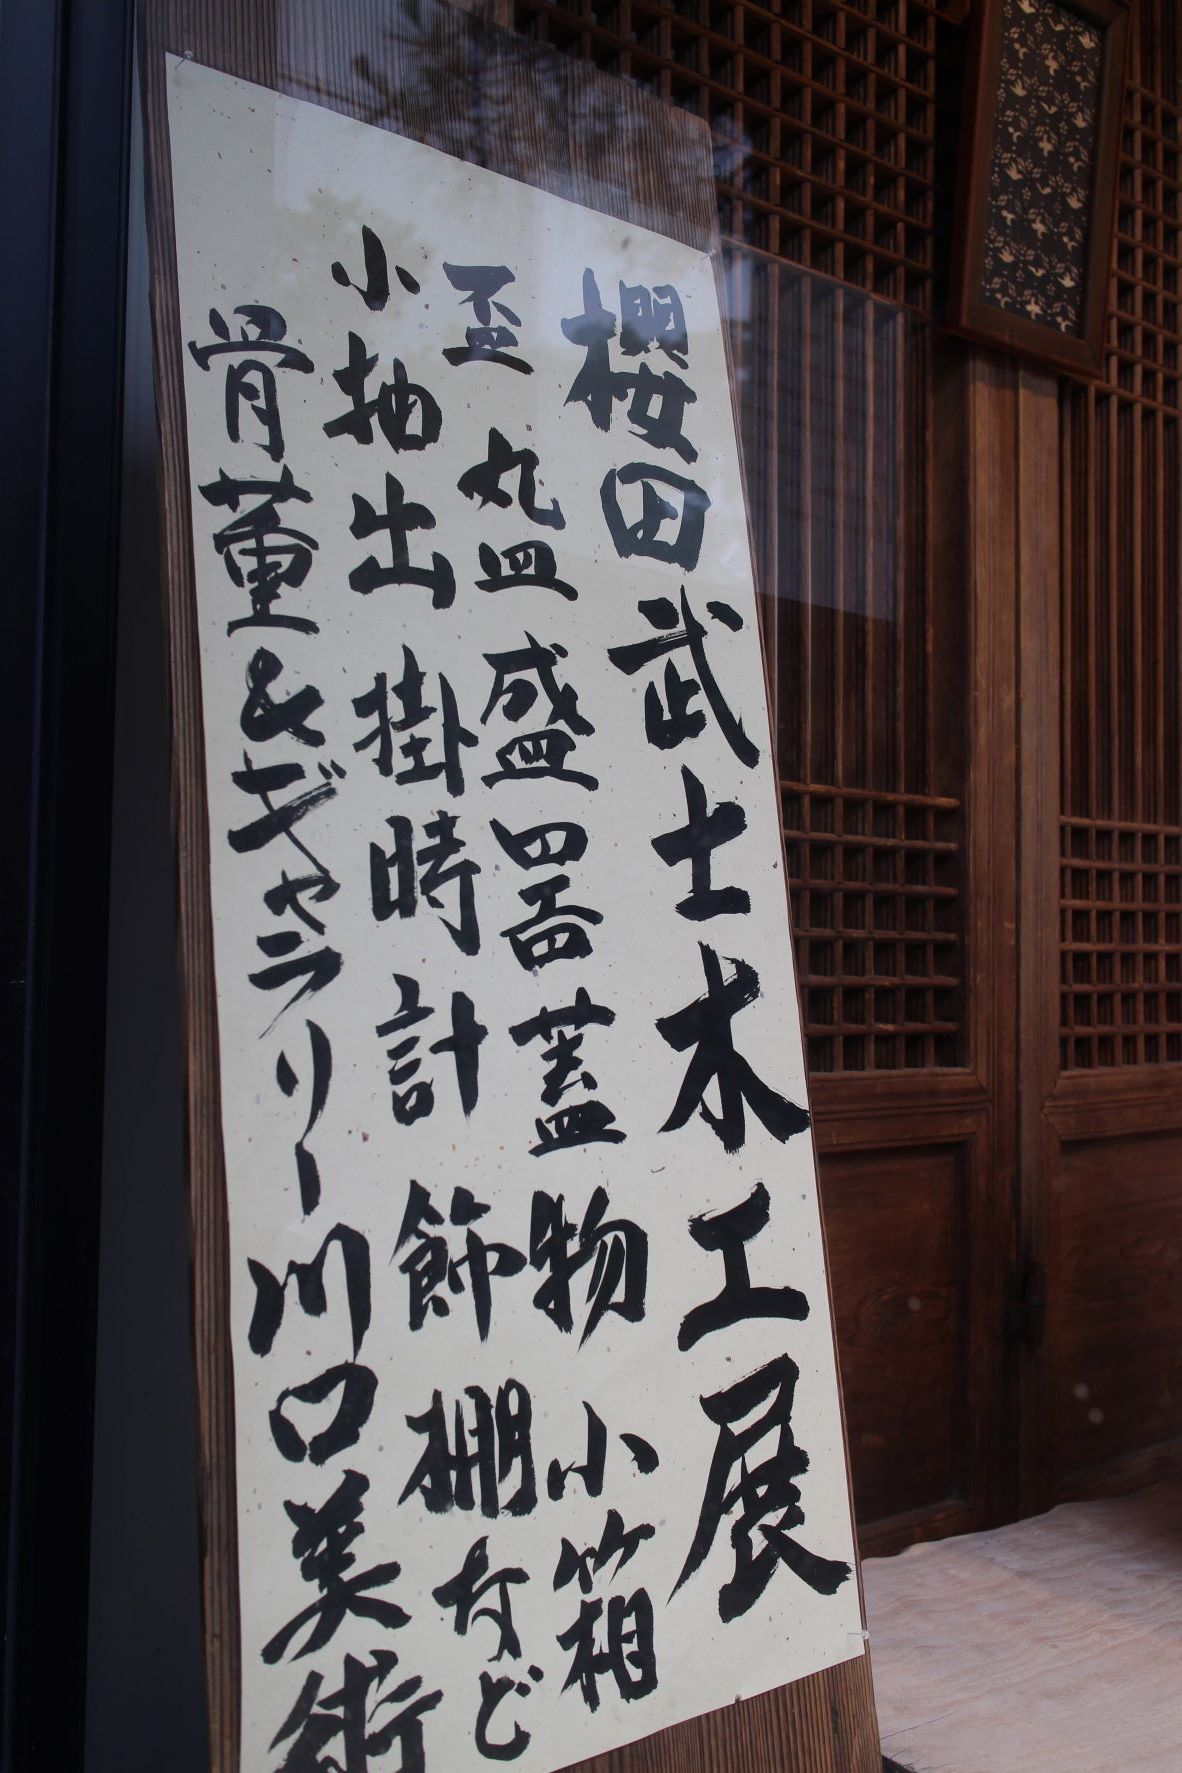 櫻田武士木工展
盃 丸皿 盛皿 四方皿 蓋物 小箱
小抽出 掛時計 飾棚など
骨董&ギャラリー川口美術